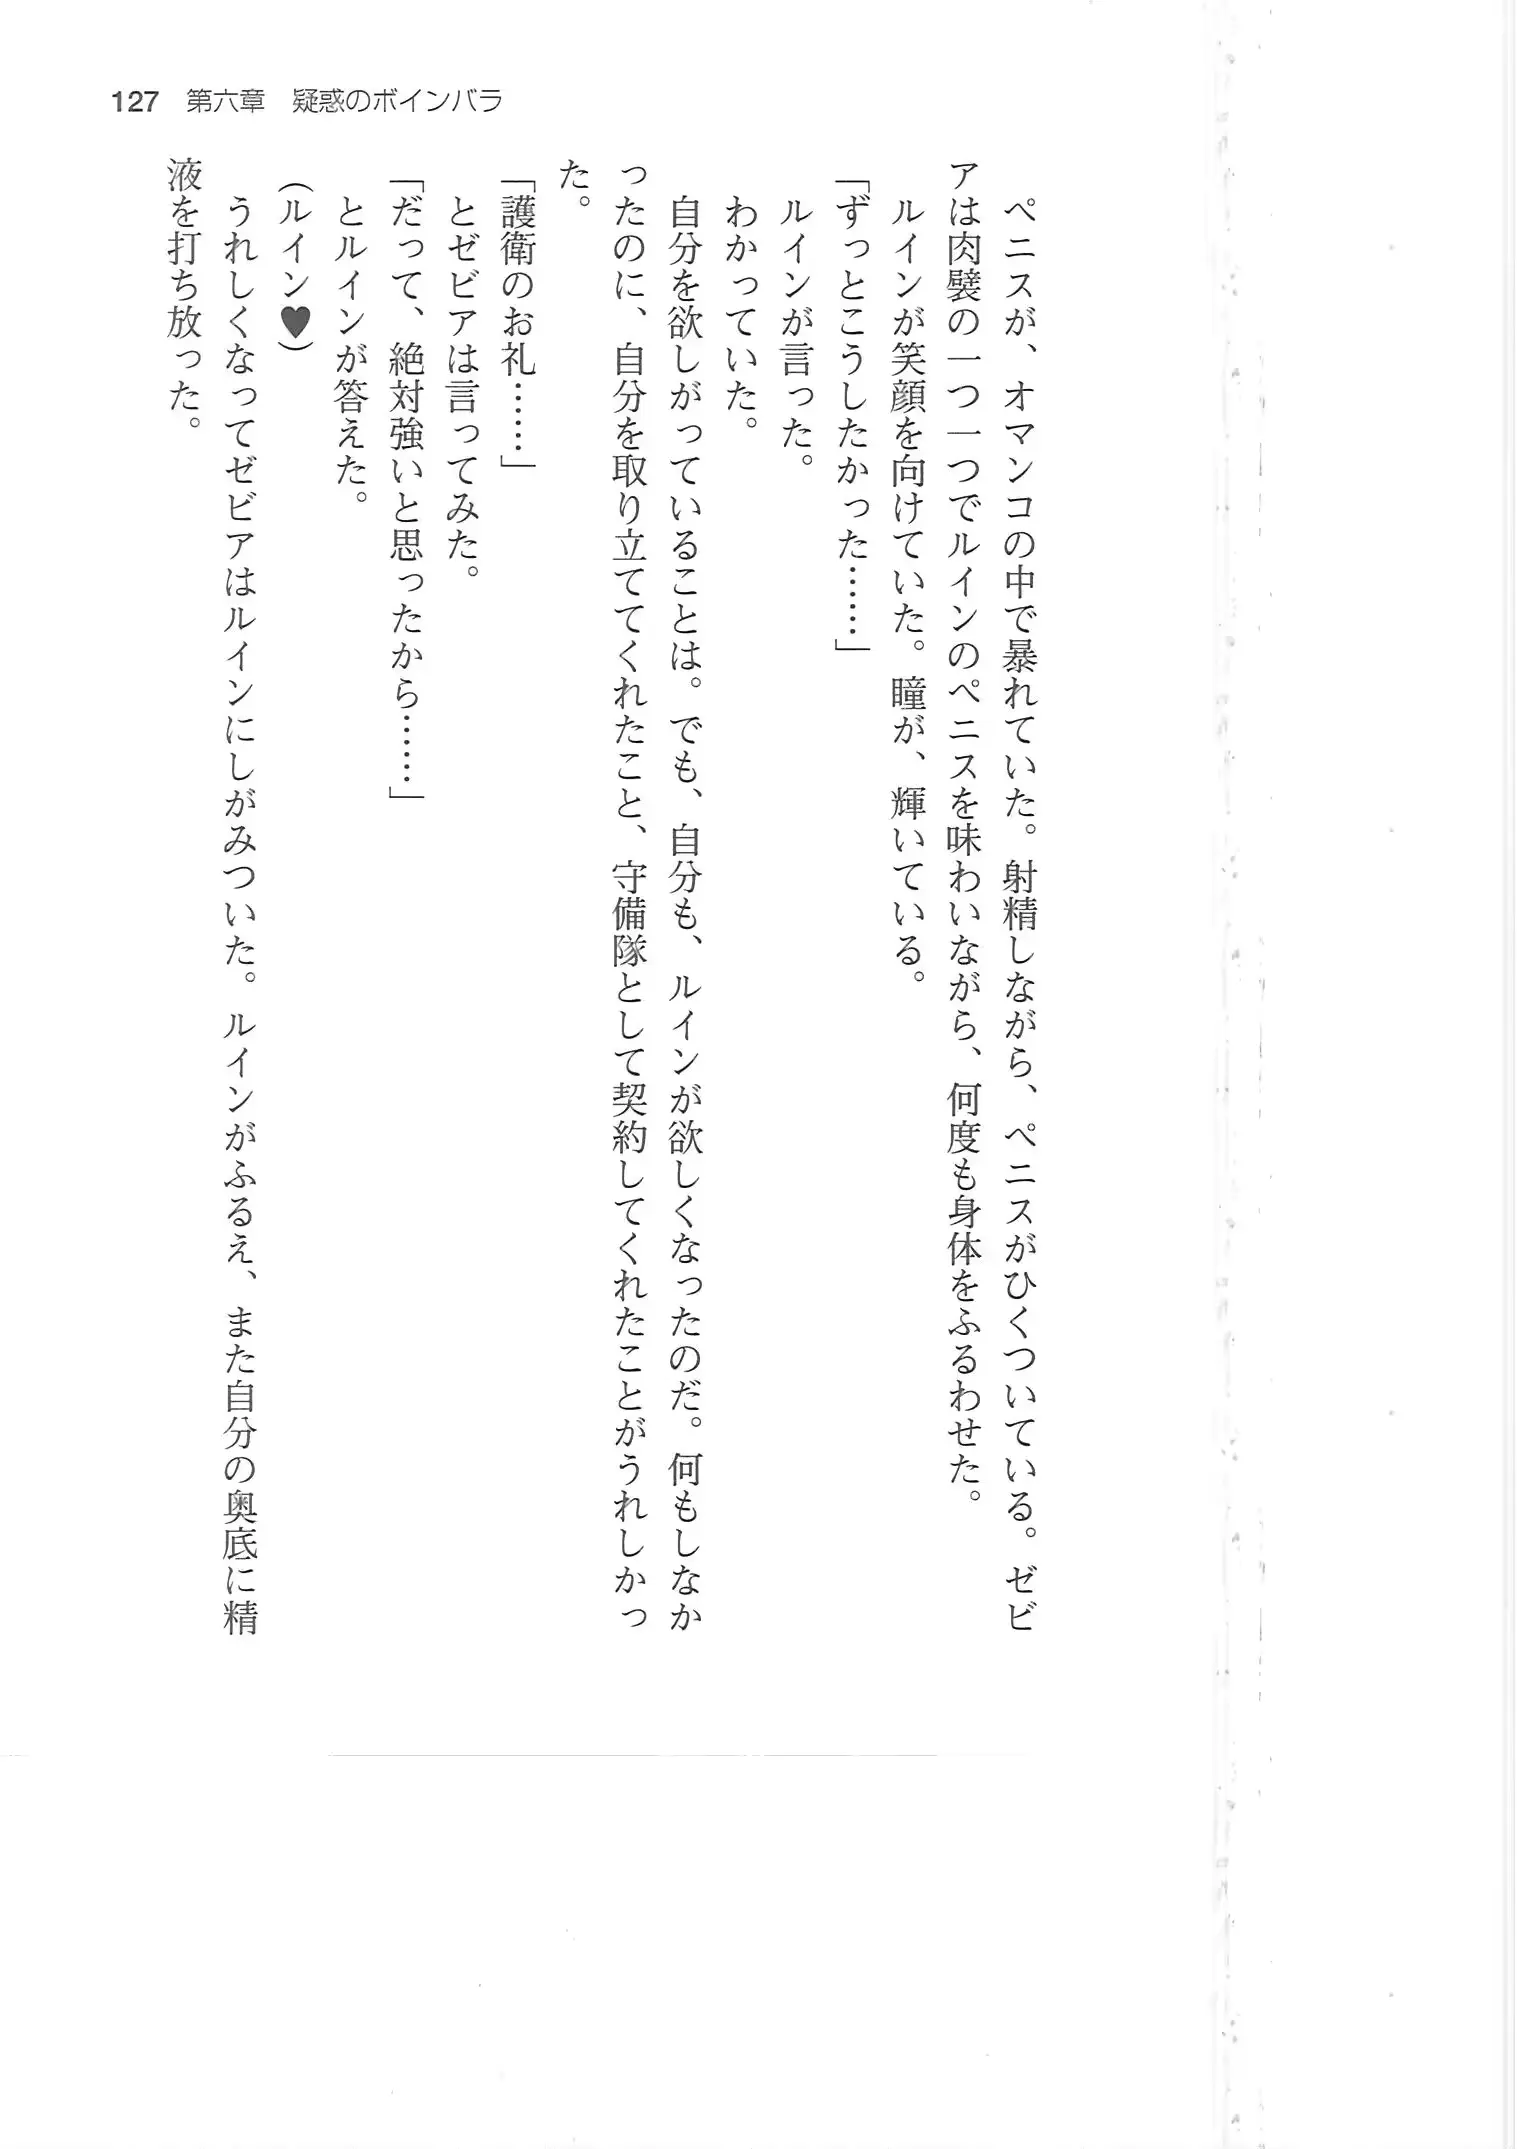 127 第六章 疑惑のボインバラ
ペニスが、オマンコの中で暴れていた。射精しながら、ペニスがひくついている。ゼビ
アは肉襞の一つ一つでルインのペニスを味わいながら、何度も身体をふるわせた。
ルインが笑顔を向けていた。瞳が、輝いている。
「ずっとこうしたかった……」
ルインが言った。
わかっていた。
自分を欲しがっていることは。でも、自分も、ルインが欲しくなったのだ。何もしなか
ったのに、自分を取り立ててくれたこと、守備隊として契約してくれたことがうれしかっ
た。
「護衛のお礼……」
とゼビアは言ってみた。
「だって、絶対強いと思ったから……」
とルインが答えた。
(ルイン♥)
うれしくなってゼビアはルインにしがみついた。ルインがふるえ、また自分の奥底に精
液を打ち放った。